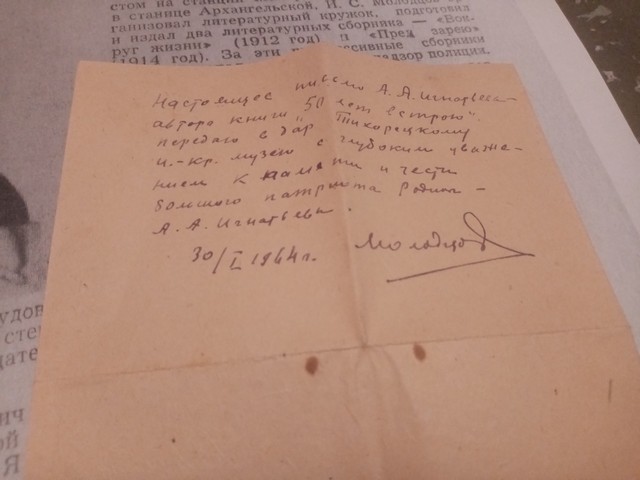 в станице Архангельской, И. С. Молодцов
ганизовал литературный кружок, подготовил
и издал два литературных сборника — «Вок-
руг жизни» (1912 год) и «Пред зарею»
(1914 год). За эти сборники
надзор полиции.
Настоящее письмо А. А. Игнатьева —
автора книги "50 лет в строю".
передаю в дар Тихорецкому
и.-кр. музею с глубоким уваже-
нием к памяти и чести
большого патриота Родины —
А. А. Игнатьева.
30/I 1964 г. Молодцов